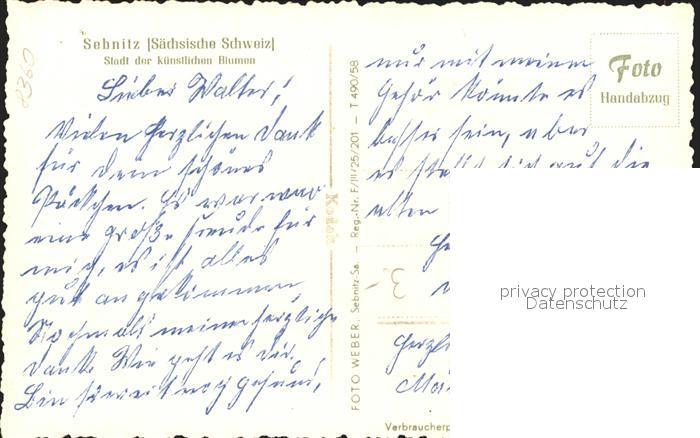 Sebnitz [Sächsische Schweiz]
Stadt der künstlichen Blumen
Lieber Walter!
Vielen herzlichen Dank
für dein schönes
Päckchen. Es war
eine große Freude für
mich, es ist alles
gut angekommen,
Nochmals meinen herzlichen
Dank. Wie geht es dir.
Bin soweit noch gesund,
nur mit meinem
Gehör könnte es
besser sein, aber
es stellt sich auf die
alten
Herzl
Foto
Handabzug
FOTO WEBER, Sebnitz Sa. — Reg.-Nr. F/III/25/201 — T 490/58
8360
3.-
privacy protection
Datenschutz
Verbraucherp